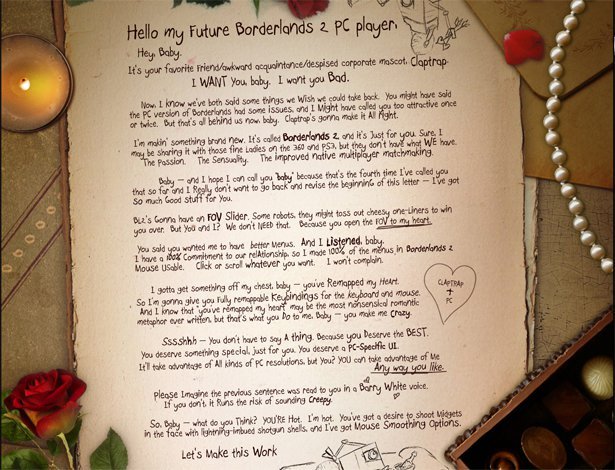 Hello my Future Borderlands 2 PC player,
Hey, Baby.
It's your favorite Friend/awkward acquaintance/despised corporate mascot, Claptrap.
I WANT You, baby. I want you Bad.
Now, I know we've both said some things we Wish we could take back. You might have said
the PC version of Borderlands had some issues, and I Might have called you too attractive once
or twice. But that's all behind us now, baby. Claptrap's gonna make it All Right.
I'm makin' something brand new. It's called Borderlands 2, and it's Just for you. Sure, I
may be sharing it with those fine Ladies on the 360 and PS3, but they don't have what WE have.
The Passion. The Sensuality. The improved native multiplayer matchmaking.
Baby – and I hope I can call you 'baby' because that's the fourth time I've called you
that so far and I Really don't want to go back and revise the beginninG of this letter – I've got
So much Good stuff for You.
BL2's Gonna have an FOV Slider. Some robots, they might toss out cheesy one-Liners to win
you over. But YoU and I? We don't NEED that. Because you open the FOV to my heart.
You said you wanted me to have better Menus. And I Listened, baby.
I have a 100% Commitment to our relAtionship, so I made 100% of the menus in Borderlands 2
Mouse USable. Click or Scroll whatever you want. I won't complain.
I gotta get something off my chest, baby – you've Remapped my Heart.
So I'm gonna give you Fully remappable Keybindings for the keyboard and mouse.
And I know that 'you've remapped my heart' may be the most nonsensical romantic
metaphor ever written, but that's what you Do to me, Baby – you make me Crazy.
CLAPTRAP
+
PC
Sssshhh – You don't have to say A thing. Because you Deserve the BEST.
You deserve something special, just for you. You deserve a PC-Specific UI.
It'll take advantage of All kinds of PC resolutions, but You? YOU can take advantage of Me
Any way you like.
Please Imagine the previous sentence was read to you in a Barry White voice.
If you don't, it Runs the risk of sounding Creepy.
So, Baby – what do you Think? YOU'RE Hot. I'm hot. You've got a desire to shoot Midgets
in the face with lightning-imbued shotgun shells, and I've got Mouse Smoothing Options.
Let's Make this Work